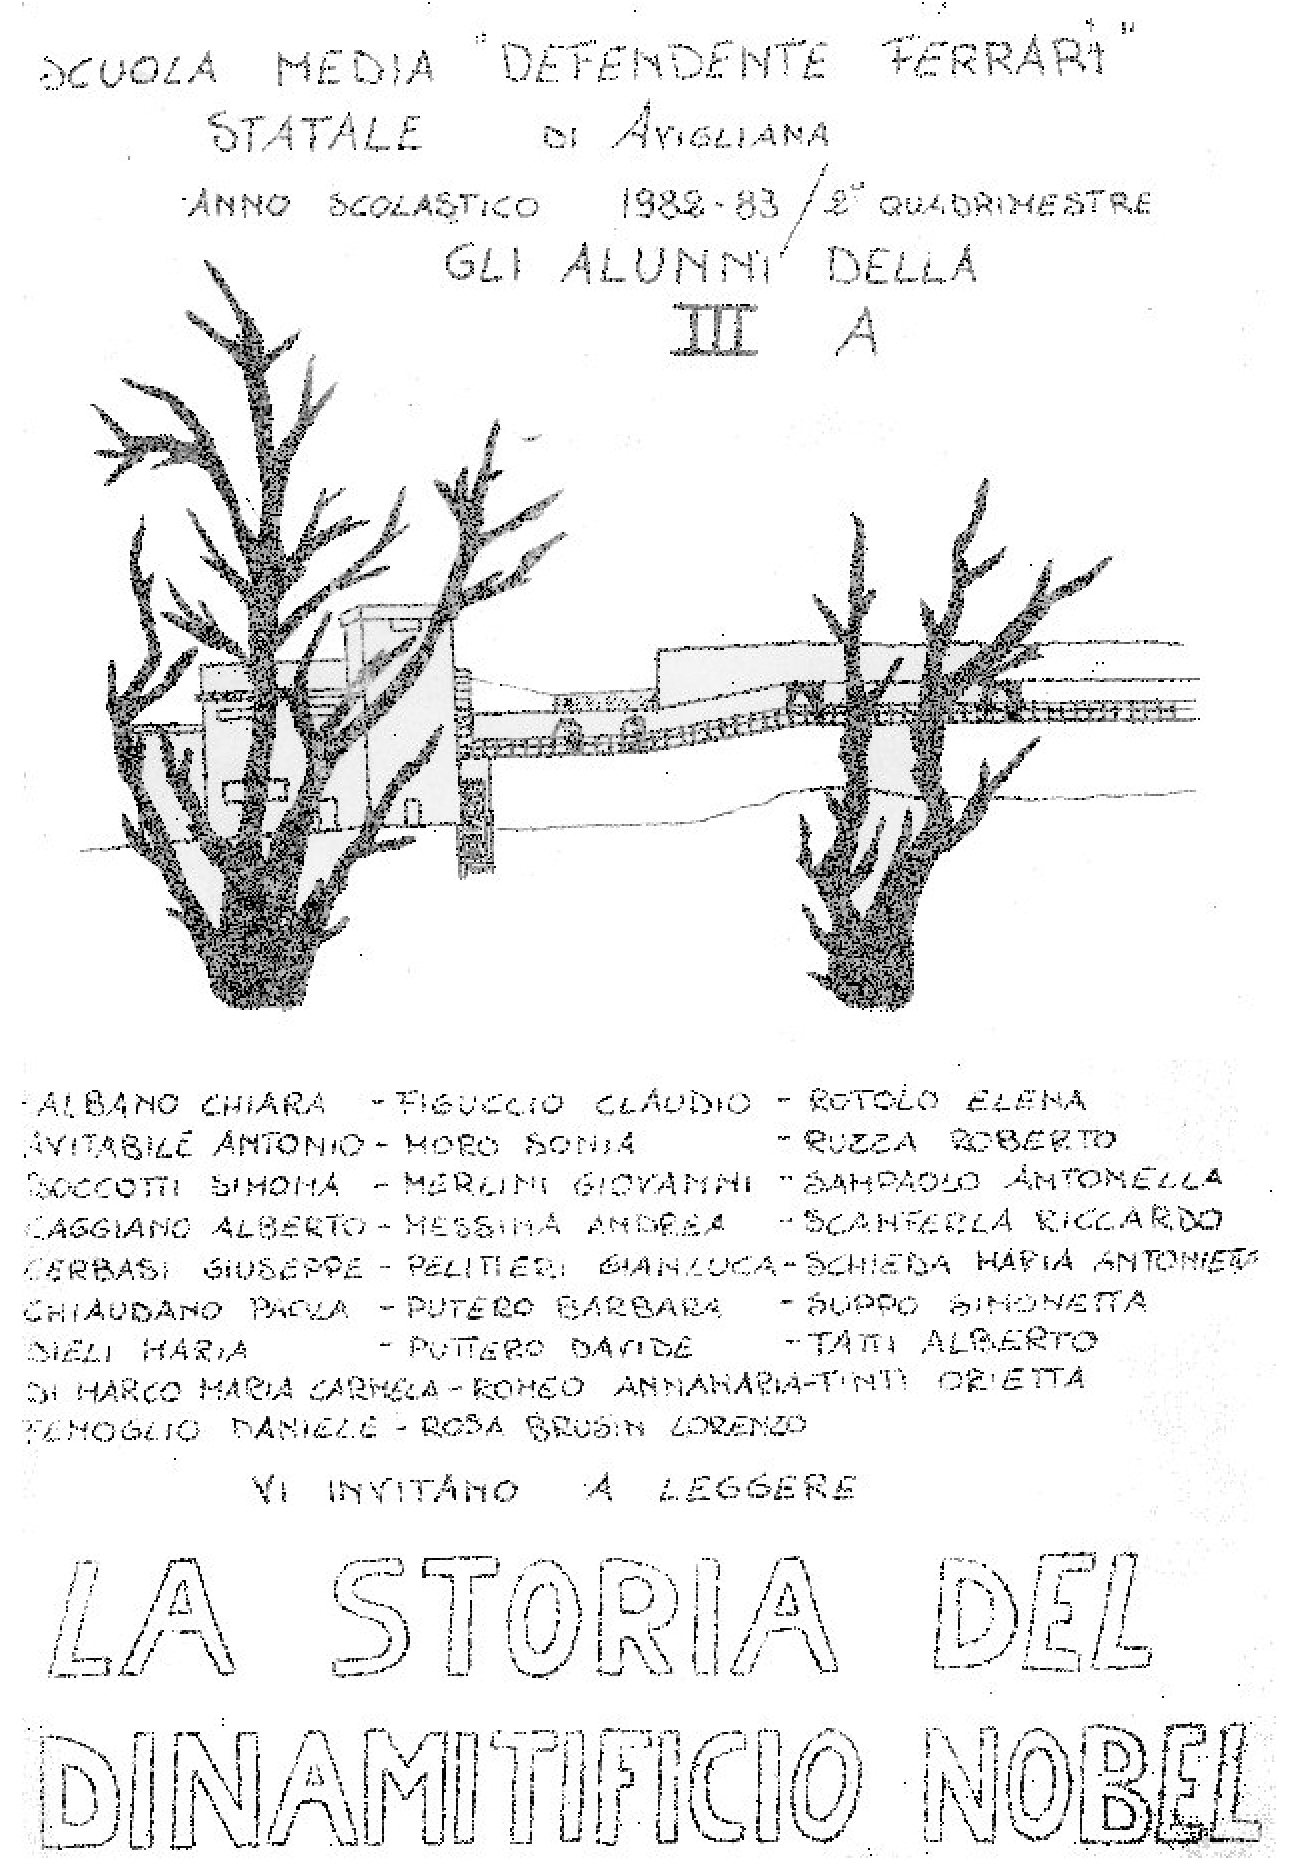 SCUOLA MEDIA "DEFENDENTE FERRARI"
STATALE DI AVIGLIANA
ANNO SCOLASTICO 1982-83 / 2° QUADRIMESTRE
GLI ALUNNI DELLA
III A
-ALBANO CHIARA - FIGUCCIO CLAUDIO - ROTOLO ELENA
AVITABILE ANTONIO - MORO SONIA - RUZZA ROBERTO
BOCCOTTI SIMONA - MERLINI GIOVANNI - SAMPAOLO ANTONELLA
CAGGIANO ALBERTO - MESSINA ANDREA - SCANFERLA RICCARDO
CERBASI GIUSEPPE - PELITIERI GIANLUCA - SCHIEDA MARIA ANTONIETTA
CHIAUDANO PAOLA - PUTERO BARBARA - SUPPO SIMONETTA
DIELI MARIA - PUTTERO DAVIDE - TATTI ALBERTO
DI MARCO MARIA CARMELA - ROMEO ANNAMARIA - TINTI ORIETTA
FEMOGLIO DANIELE - ROSA BRUSIN LORENZO
VI INVITANO A LEGGERE
LA STORIA DEL
DINAMITIFICIO NOBEL